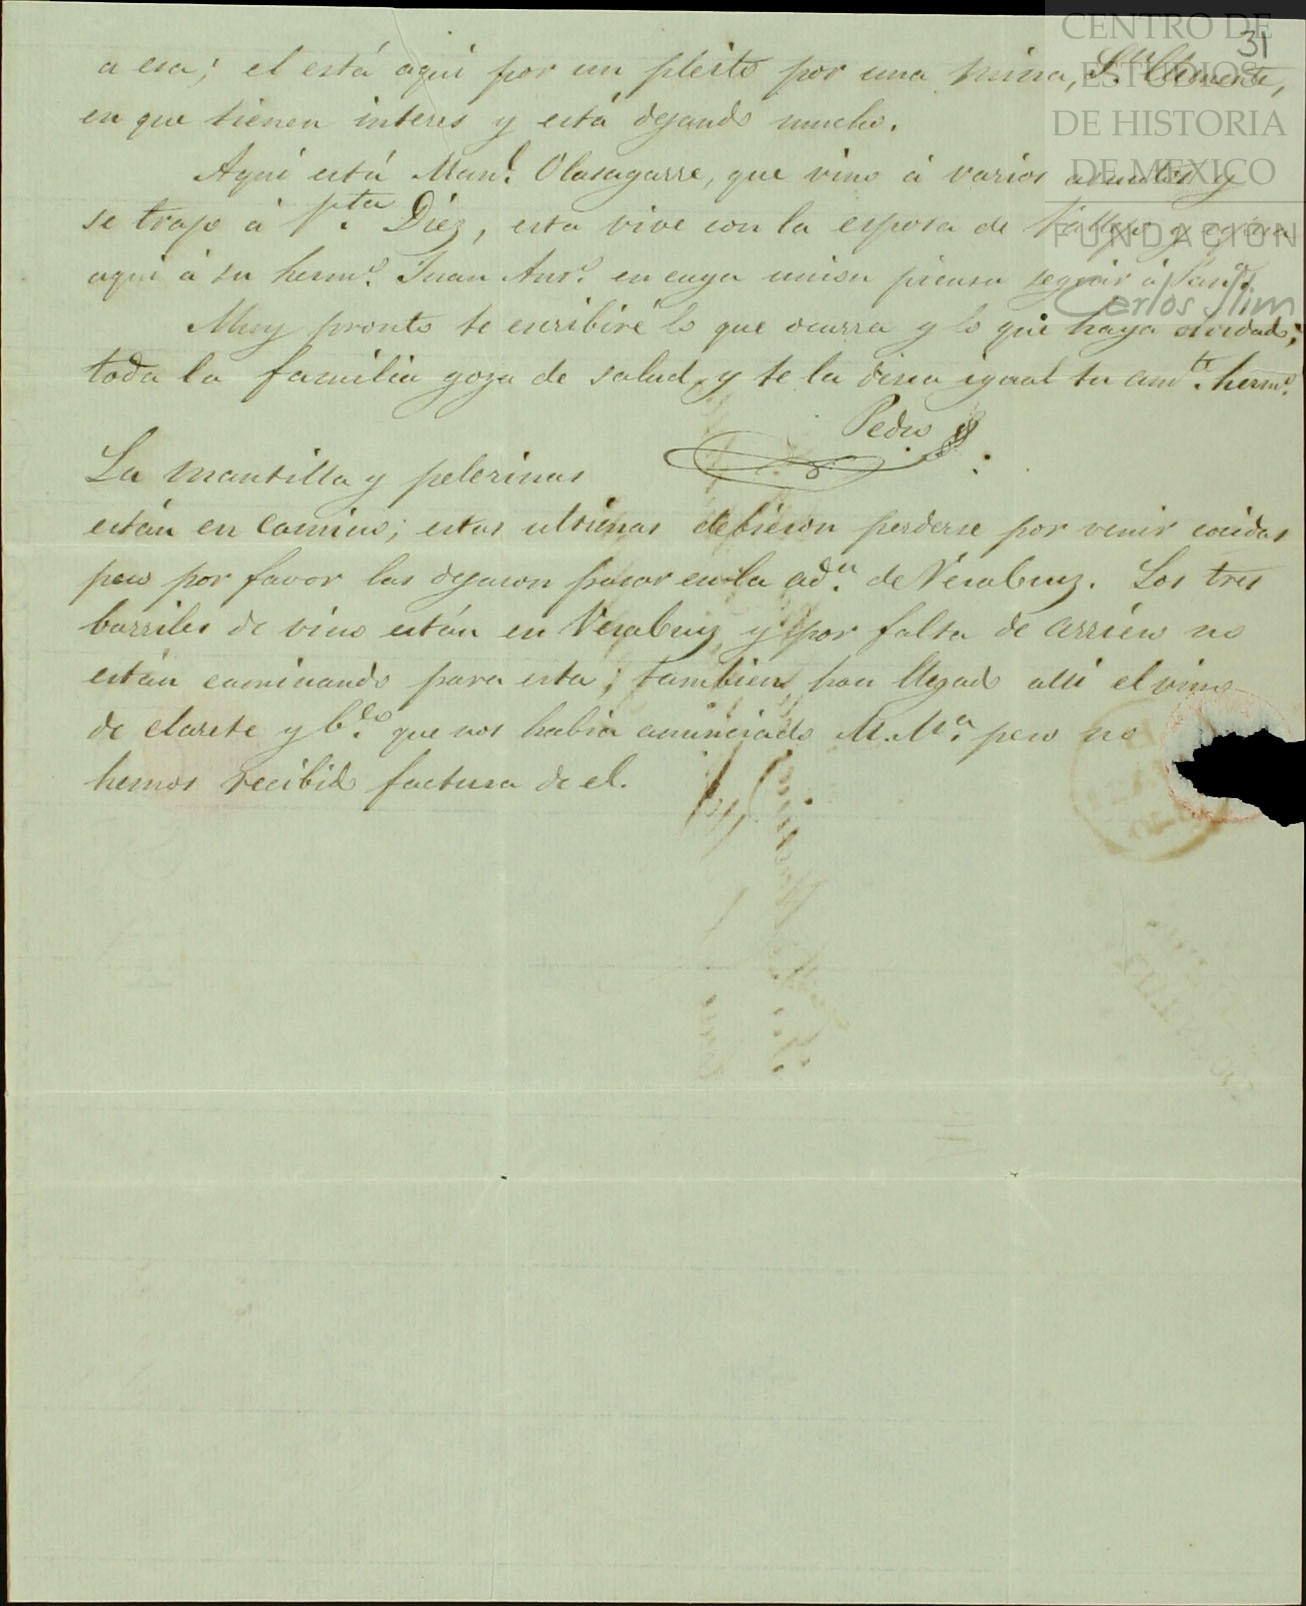 CENTRO DE
ESTUDIOS
DE HISTORIA
DE MEXICO
FUNDACION
Carlos Slim
31
a esa; el está aqui por un pleito por una mina, Sn. Clemente,
en que tienen interes y está dejando mucho.
Aqui está Manl. Olasagarre, que vino á varios asuntos y
se trajo á Pta. Diez, esta vive con la esposa de Vallejo y espera
aqui á su hermo. Juan Anto. en cuya union piensa seguir á
Muy pronto te escribiré lo que ocurra y lo que haya olvidado;
toda la familia goza de salud, y te la desea igual tu amte. hermo.
Pedro
La mantilla y pelerinas
están en camino; estas ultimas debieron perderse por venir cocidas
pero por favor las dejaron pasar en la adna. de Veracruz. Los tres
barriles de vino están en Veracruz y por falta de arriero no
están caminando para esta; tambien han llegado alli el vino
de clarete y que nos habia anunciado M. Ma. pero no
hemos recibido factura de el.